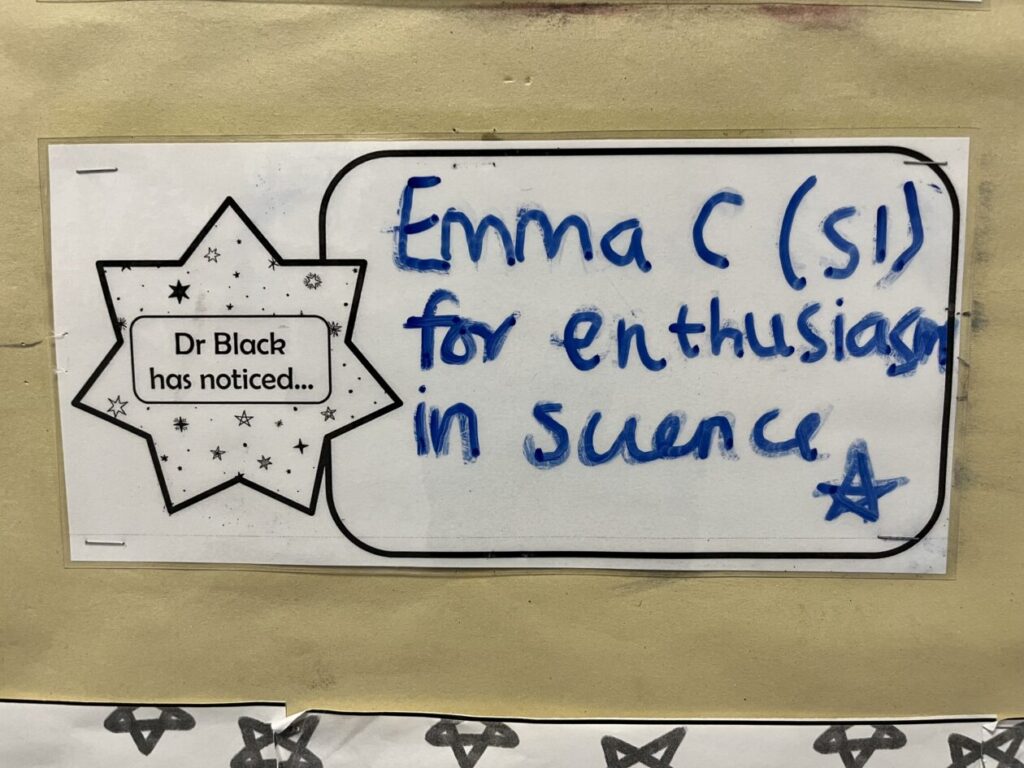 Dr Black
has noticed...
Emma C (S1)
for enthusiasm
in science